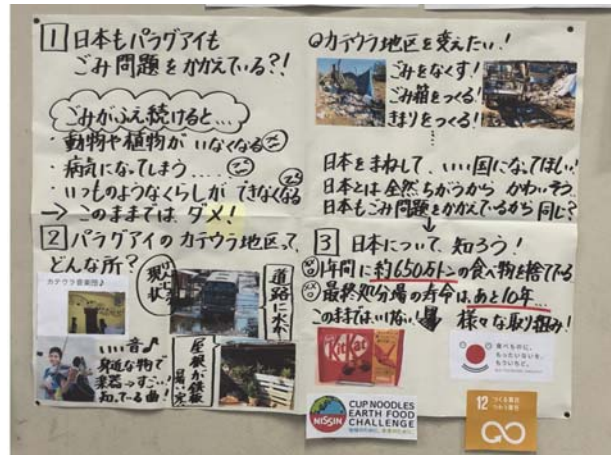 1 日本もパラグアイも
ごみ問題をかかえている?!
ごみがふえ続けると…
・動物や植物がいなくなる
・病気になってしまう....
・いつものようなくらしができなくなる
→ このままでは、ダメ!
2 パラグアイのカテウラ地区って、
どんな所?
カテウラ音楽団♪
現状
道路に水が
いい音♪
身近な物で
楽器→すごい!
知っている曲!
屋根が鉄板
カテウラ地区を変えたい!
ごみをなくす!
ごみ箱をつくる!
きまりをつくる!
日本をまねして、いい国になってほしい!
日本とは全然ちがうから かわいそう。
日本もごみ問題をかかえているから同じ?
3 日本について、知ろう!
1年間に約650万トンの食べ物を捨てている
最終処分場の寿命は、あと10年…
このままではいけない!
様々な取り組み!
KitKat
食べものに、
もったいないを、
もういちど。
NISSIN
CUP NOODLES
EARTH FOOD
CHALLENGE
12 つくる責任
つかう責任